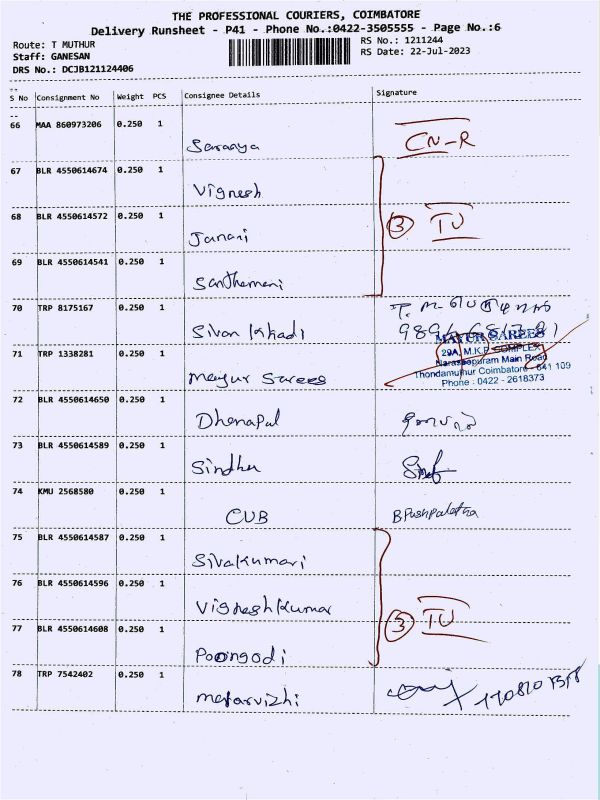 THE PROFESSIONAL COURIERS, COIMBATORE
Delivery Runsheet - P41 - Phone No.:0422-3505555 - Page No.:6
Route: T MUTHUR
Staff: GANESAN
DRS No.: DCJB121124406
RS No.: 1211244
RS Date: 22-Jul-2023
S No Consignment No Weight PCS Consignee Details Signature
66 MAA 860973206 0.250 1 Saranya CN-R
67 BLR 4550614674 0.250 1 Vignesh
68 BLR 4550614572 0.250 1 Janani 3 TU
69 BLR 4550614541 0.250 1 Santhamani
70 TRP 8175167 0.250 1 Sivan Khadi
71 TRP 1338281 0.250 1 Mayur Sarees
MAYUR SAREES
29A, M.K.P. COMPLEX
Naraseepuram Main Road
Thondamuthur Coimbatore - 641 109
Phone : 0422 - 2618373
72 BLR 4550614650 0.250 1 Dhanapal
73 BLR 4550614589 0.250 1 Sindhu
74 KMU 2568580 0.250 1 CUB B Pushpalatha
75 BLR 4550614587 0.250 1 Sivakumari
76 BLR 4550614596 0.250 1 Vigneshkumar 3 TU
77 BLR 4550614608 0.250 1 Poongodi
78 TRP 7542402 0.250 1